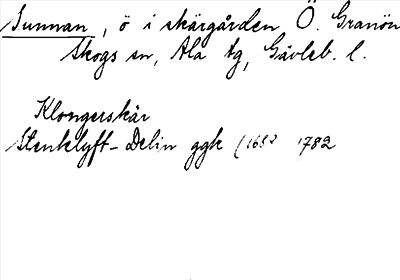 Sunnan, ö i skärgården Ö. Granön
Skogs sn, Ala tg, Gävleb. l.
Klongerskär
Stenklyft-Delin ggk (1682 1782